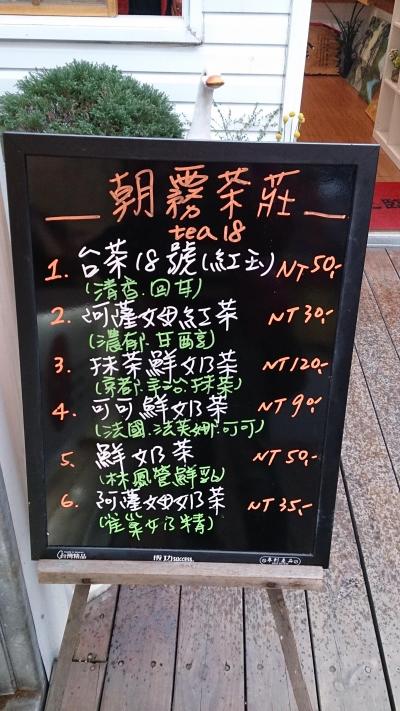 朝霧茶莊
tea 18
1. 台茶18號(紅玉) NT50.-
(清香.回甘)
2. 阿薩姆紅茶 NT30.-
(濃郁.甘醇)
3. 抹茶鮮奶茶 NT120.-
(京都.宇治抹茶)
4. 可可鮮奶茶 NT90.-
(法國.法芙娜.可可)
5. 鮮奶茶 NT50.-
(林鳳營鮮乳)
6. 阿薩姆奶茶 NT35.-
(雀巢奶精)
台灣精品 成功success. 專利產品